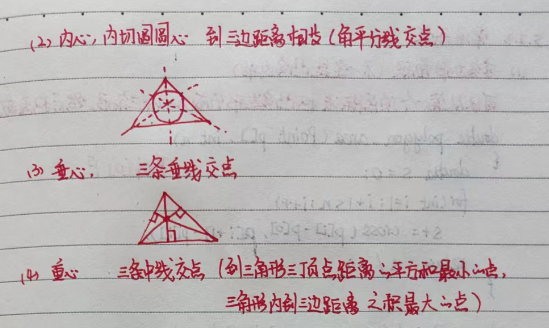 (2) 内心,内切圆圆心 到三边距离相等(角平分线交点)
(3) 垂心, 三条垂线交点
(4) 重心 三条中线交点(到三角形三顶点距离的平方和最小的点,
三角形内到三边距离之积最大的点)